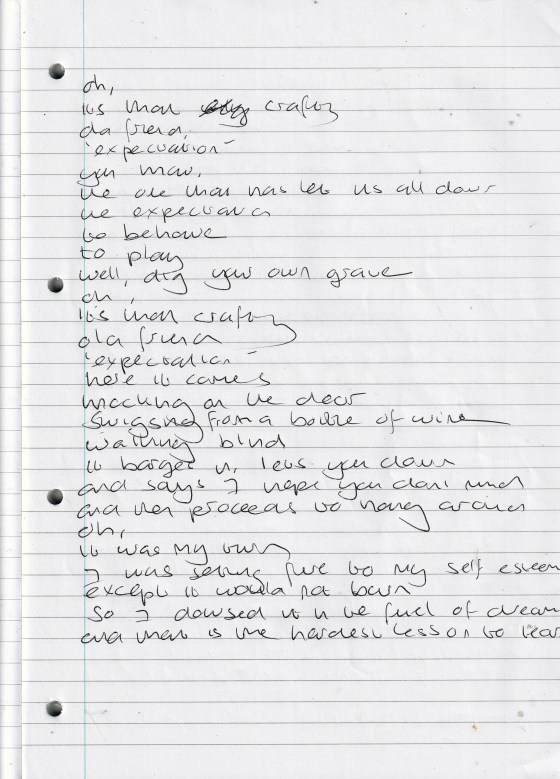 oh,
it's that crafty
old friend,
'expectation'
you know,
the one that has let us all down
the expectation
to behave
to play
well, dig your own grave
oh,
it's that crafty
old friend
'expectation'
here it comes
knocking on the door
swigging from a bottle of wine
walking blind
it barges in, lets you down
and says I hope you don't mind
and then proceeds to hang around
oh,
it was my turn
I was setting fire to my self esteem
except it would not burn
so I dowsed it in the fuel of dream
and that is the hardest lesson to lear